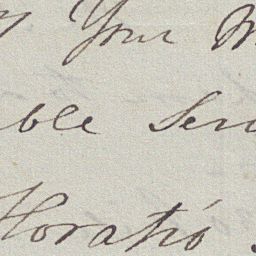 Your
ble Ser
Horatio